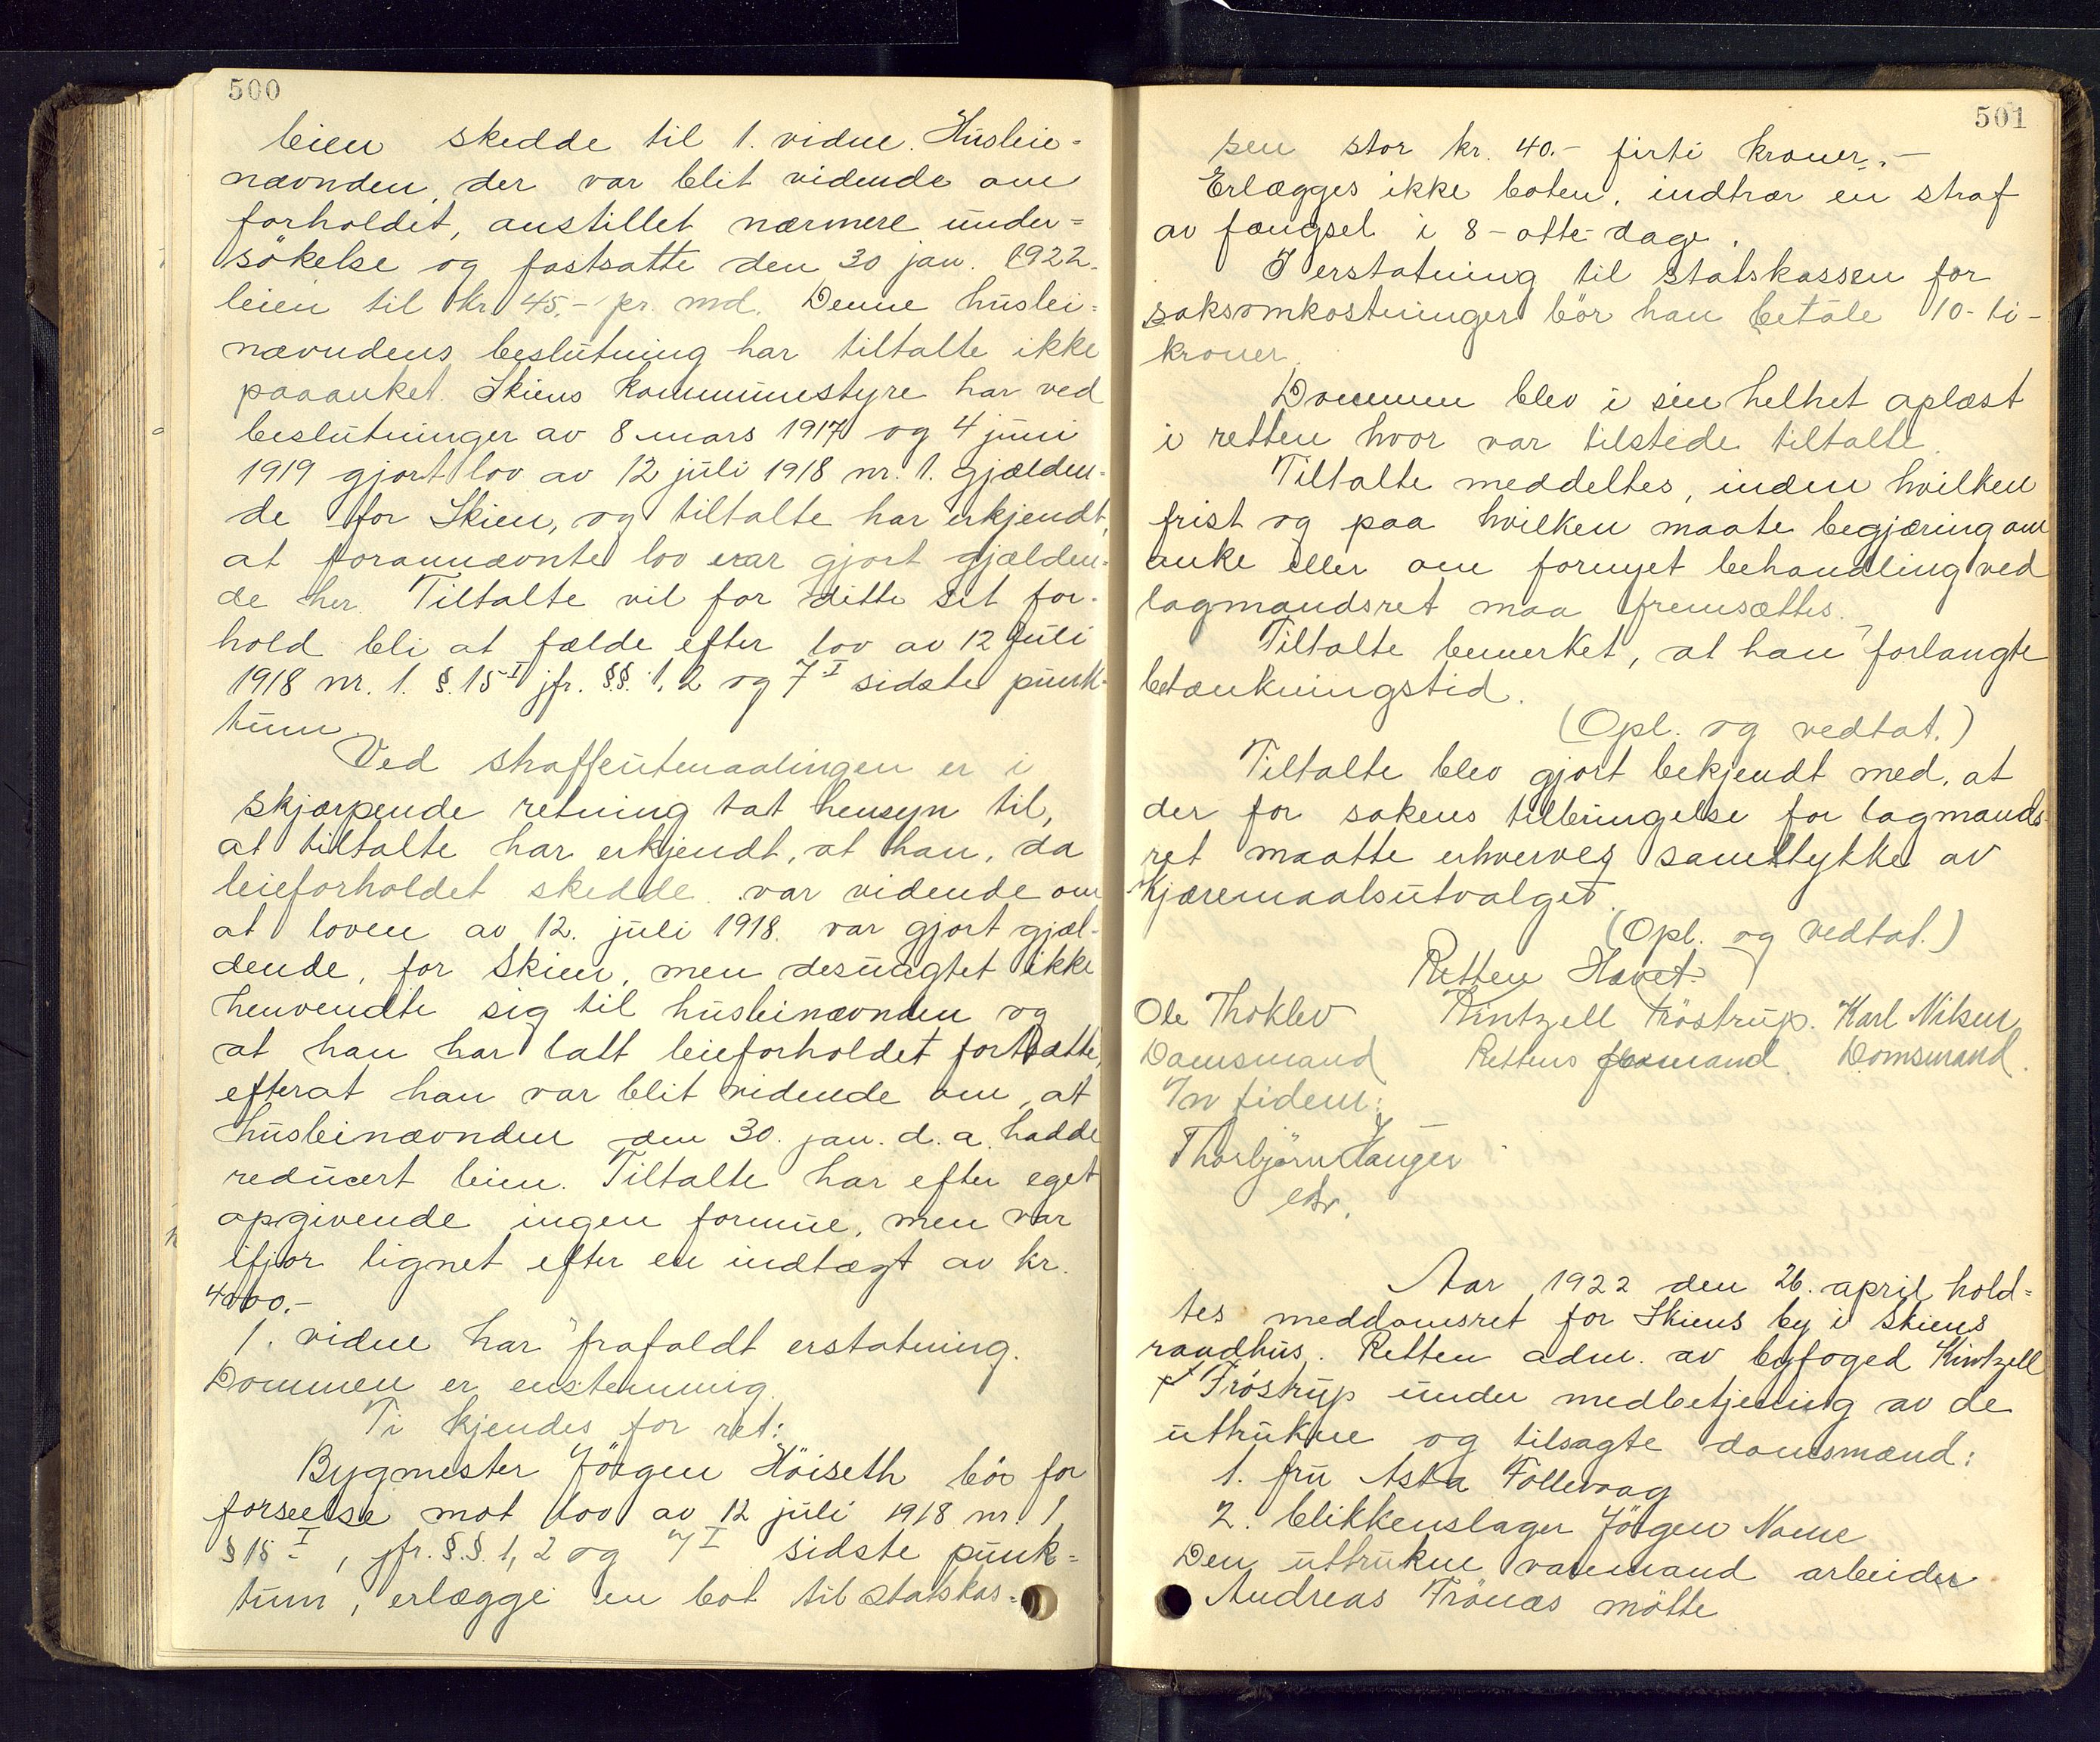 500
leien skedde til 1. vidne. Husleie-
nævnden, der var blit vidende om
forholdet, anstillet nærmere under-
søkelse og fastsatte den 30 jan. 1922.
leien til kr. 45.- pr. md. Denne huslei-
nævndens beslutning har tiltalte ikke
paaanket. Skiens kommunestyre har ved
beslutninger av 8 mars 1917 og 4 juni
1919 gjort lov av 12 juli 1918 nr. 1. gjælden-
de for Skien, og tiltalte har erkjendt,
at forannævnte lov var gjort gjælden-
de her. Tiltalte vil for dette sit for-
hold bli at fælde efter lov av 12 juli
1918 nr. 1. §. 15 I jfr. §§. 1, 2 og 7 I sidste punk-
tum.
Ved straffeutmaalingen er i
skjærpende retning tat hensyn til,
at tiltalte har erkjendt, at han, da
leieforholdet skedde var vidende om
at loven av 12. juli 1918. var gjort gjæl-
dende, for Skien, men desuagtet ikke
henvendte sig til husleinævnden og
at han har latt leieforholdet fortsætte,
efterat han var blit vidende om, at
husleinævnden den 30. jan. d. a. hadde
reducert leien. Tiltalte har efter eget
opgivende ingen formue, men var
ifjor lignet efter en indtægt av kr.
4000.-
1. vidne har frafaldt erstatning.
Dommen er enstemmig.
Ti kjendes for ret:
Bygmester Jörgen Höiseth bör for
forseelse mot lov av 12 juli 1918 nr. 1
§ 15 I, jfr. §.§. 1, 2 og 7 I sidste punk-
tum, erlægge en bot til statskas-
501
sen stor kr. 40.- firti kroner.-
Erlægges ikke boten, indtrær en straf
av fængsel i 8 - otte dage.
I erstatning til statskassen for
saksomkostninger bör han betale 10 - ti -
kroner.
Dommen blev i sin helhet oplæst
i retten hvor var tilstede tiltalte.
Tiltalte meddeltes, inden hvilken
frist og paa hvilken maate begjæring om
anke eller om fornyet behandling ved
lagmandsret maa fremsættes.
Tiltalte bemerket, at han forlangte
betænkningstid.
(Opl. og vedtat.)
Tiltalte blev gjort bekjendt med, at
der for sakens tilbringelse for lagmands-
ret maatte erhverves samtykke av
Kjæremaalsutvalget.
(Opl. og vedtat.)
Retten Hævet.
Ole Thoklev Kintzell Fröstrup. Karl Nilsen
Domsmand Rettens formand. Domsmand.
In fidem:
Thorbjörn Hauger
Aar 1922 den 26. april hold-
tes meddomsret for Skiens by i Skiens
raadhus. Retten adm. av byfoged Kintzell
Fröstrup under medbetjening av de
uttrukne og tilsagte domsmænd:
1. fru Aska Follevaag
2. blikkenslager Jörgen Næme
Den uttrukne varamand arbeider
Andreas Frönæs mötte